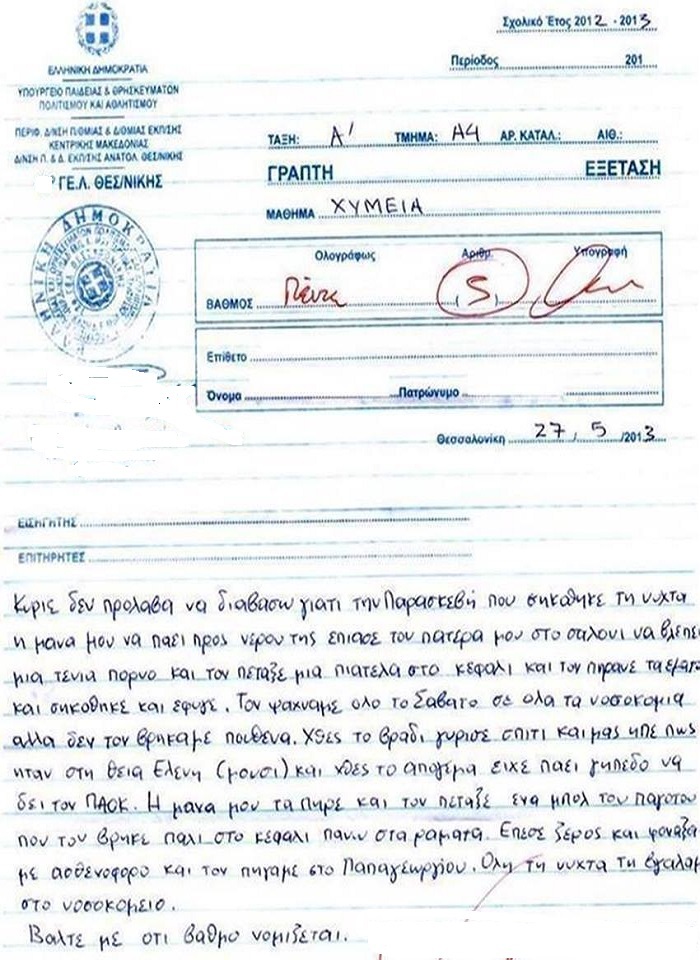 Σχολικό Έτος 2012 - 2013
Περίοδος 201
ΕΛΛΗΝΙΚΗ ΔΗΜΟΚΡΑΤΙΑ
ΥΠΟΥΡΓΕΙΟ ΠΑΙΔΕΙΑΣ & ΘΡΗΣΚΕΥΜΑΤΩΝ
ΠΟΛΙΤΙΣΜΟΥ ΚΑΙ ΑΘΛΗΤΙΣΜΟΥ
ΠΕΡΙΦ. Δ/ΝΣΗ Π/ΘΜΙΑΣ & Δ/ΘΜΙΑΣ ΕΚΠ/ΣΗΣ
ΚΕΝΤΡΙΚΗΣ ΜΑΚΕΔΟΝΙΑΣ
Δ/ΝΣΗ Π. & Δ. ΕΚΠ/ΣΗΣ ΑΝΑΤΟΛ. ΘΕΣ/ΝΙΚΗΣ
ΓΕ.Λ. ΘΕΣ/ΝΙΚΗΣ
ΤΑΞΗ: Α' ΤΜΗΜΑ: Α4 ΑΡ. ΚΑΤΑΛ.: ΑΙΘ.:
ΓΡΑΠΤΗ ΕΞΕΤΑΣΗ
ΜΑΘΗΜΑ ΧΥΜΕΙΑ
Ολογράφως Αριθμ. Υπογραφή
ΒΑΘΜΟΣ Πέντε (5)
Επίθετο
Όνομα Πατρώνυμο
Θεσσαλονίκη 27, 5 /2013
ΕΙΣΗΓΗΤΗΣ
ΕΠΙΤΗΡΗΤΕΣ
Κυριε δεν προλαβα να διαβασω γιατι την Παρασκεβή που σηκοθηκε τη νυχτα
η μανα μου να παει προς νερου της επιασε τον πατερα μου στο σαλονι να βλεπει
μια τενια πορνο και τον πεταξε μια πιατελα στο κεφαλι και τον πηρανε τα εματα
και σηκοθηκε και εφυγε. Τον ψαχναμε ολο το Σαβατο σε ολα τα νοσοκομια
αλλα δεν τον βρηκαμε πουθενα. Χθες το βραδι γυρισε σπιτι και μας ηπε πως
ηταν στη θεια Ελενη (μουσι) και χθες το απογεμα ειχε παει γηπεδο να
δει τον ΠΑΟΚ. Η μανα μου τα πηρε και τον πεταξε ενα μπολ του παγοτου
που τον βρηκε παλι στο κεφαλι πανω στα ραματα. Επεσε ξερος και φοναξα
με ασθενοφορο και τον πηγαμε στο Παπαγεωργιου. Ολη τη νυχτα τη εγαλαμ
στο νοσοκομειο.
Βαλτε με οτι βαθμο νομιζεται.